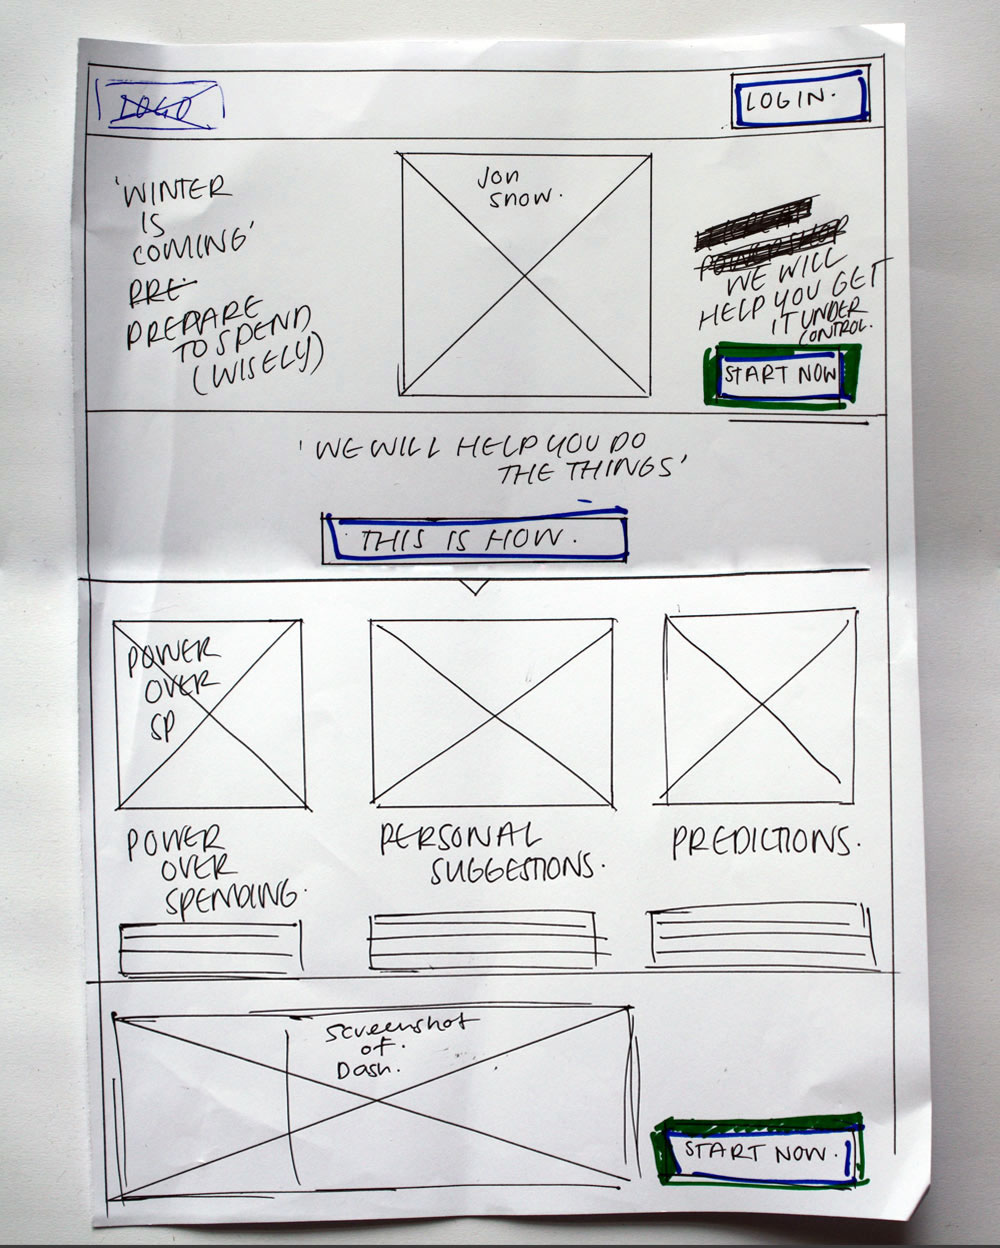 LOGO
LOGIN.
'WINTER
IS
COMING'
PRE
PREPARE
TO SPEND
(WISELY)
Jon
Snow.
POWER SHOP
WE WILL
HELP YOU GET
IT UNDER
CONTROL.
START NOW
'WE WILL HELP YOU DO
THE THINGS'
THIS IS HOW.
POWER
OVER
SP
POWER
OVER
SPENDING.
PERSONAL
SUGGESTIONS.
PREDICTIONS.
Screenshot
of.
Dash.
START NOW.